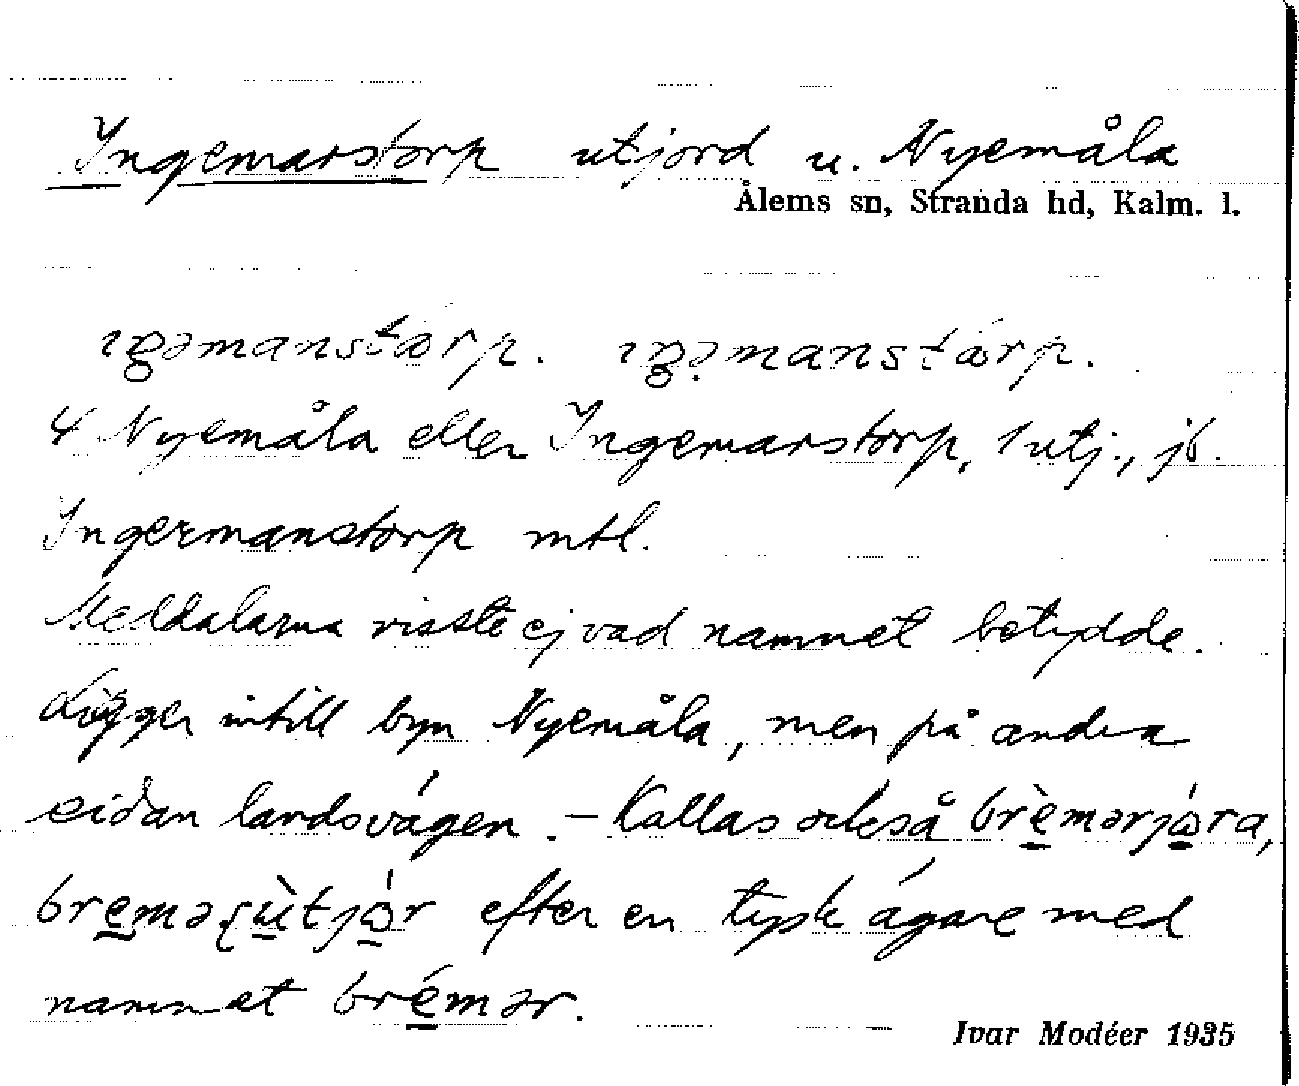 Ingemarstorp utjord u. Nyemåla
Ålems sn, Stranda hd, Kalm. l.
ıŋəmanstærp. ıŋəmanstærp.
4 Nyemåla eller Ingemarstorp, 1 utj., jb.
Ingermanstorp mtl.
Meddelarna visste ej vad namnet betydde.
Ligger intill byn Nyemåla, men på andra
sidan landsvägen. – Kallas också brèmərjóra,
breməʂùtjór efter en tysk ägare med
namnet brémər.
Ivar Modéer 1935